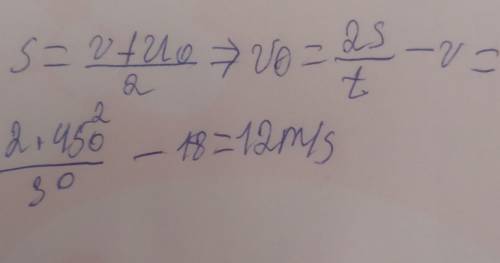 S = (v + v₀)/2 ⇒ v₀ = 2S/t − v =
(2 · 450²)/30 − 18 = 12 m/s